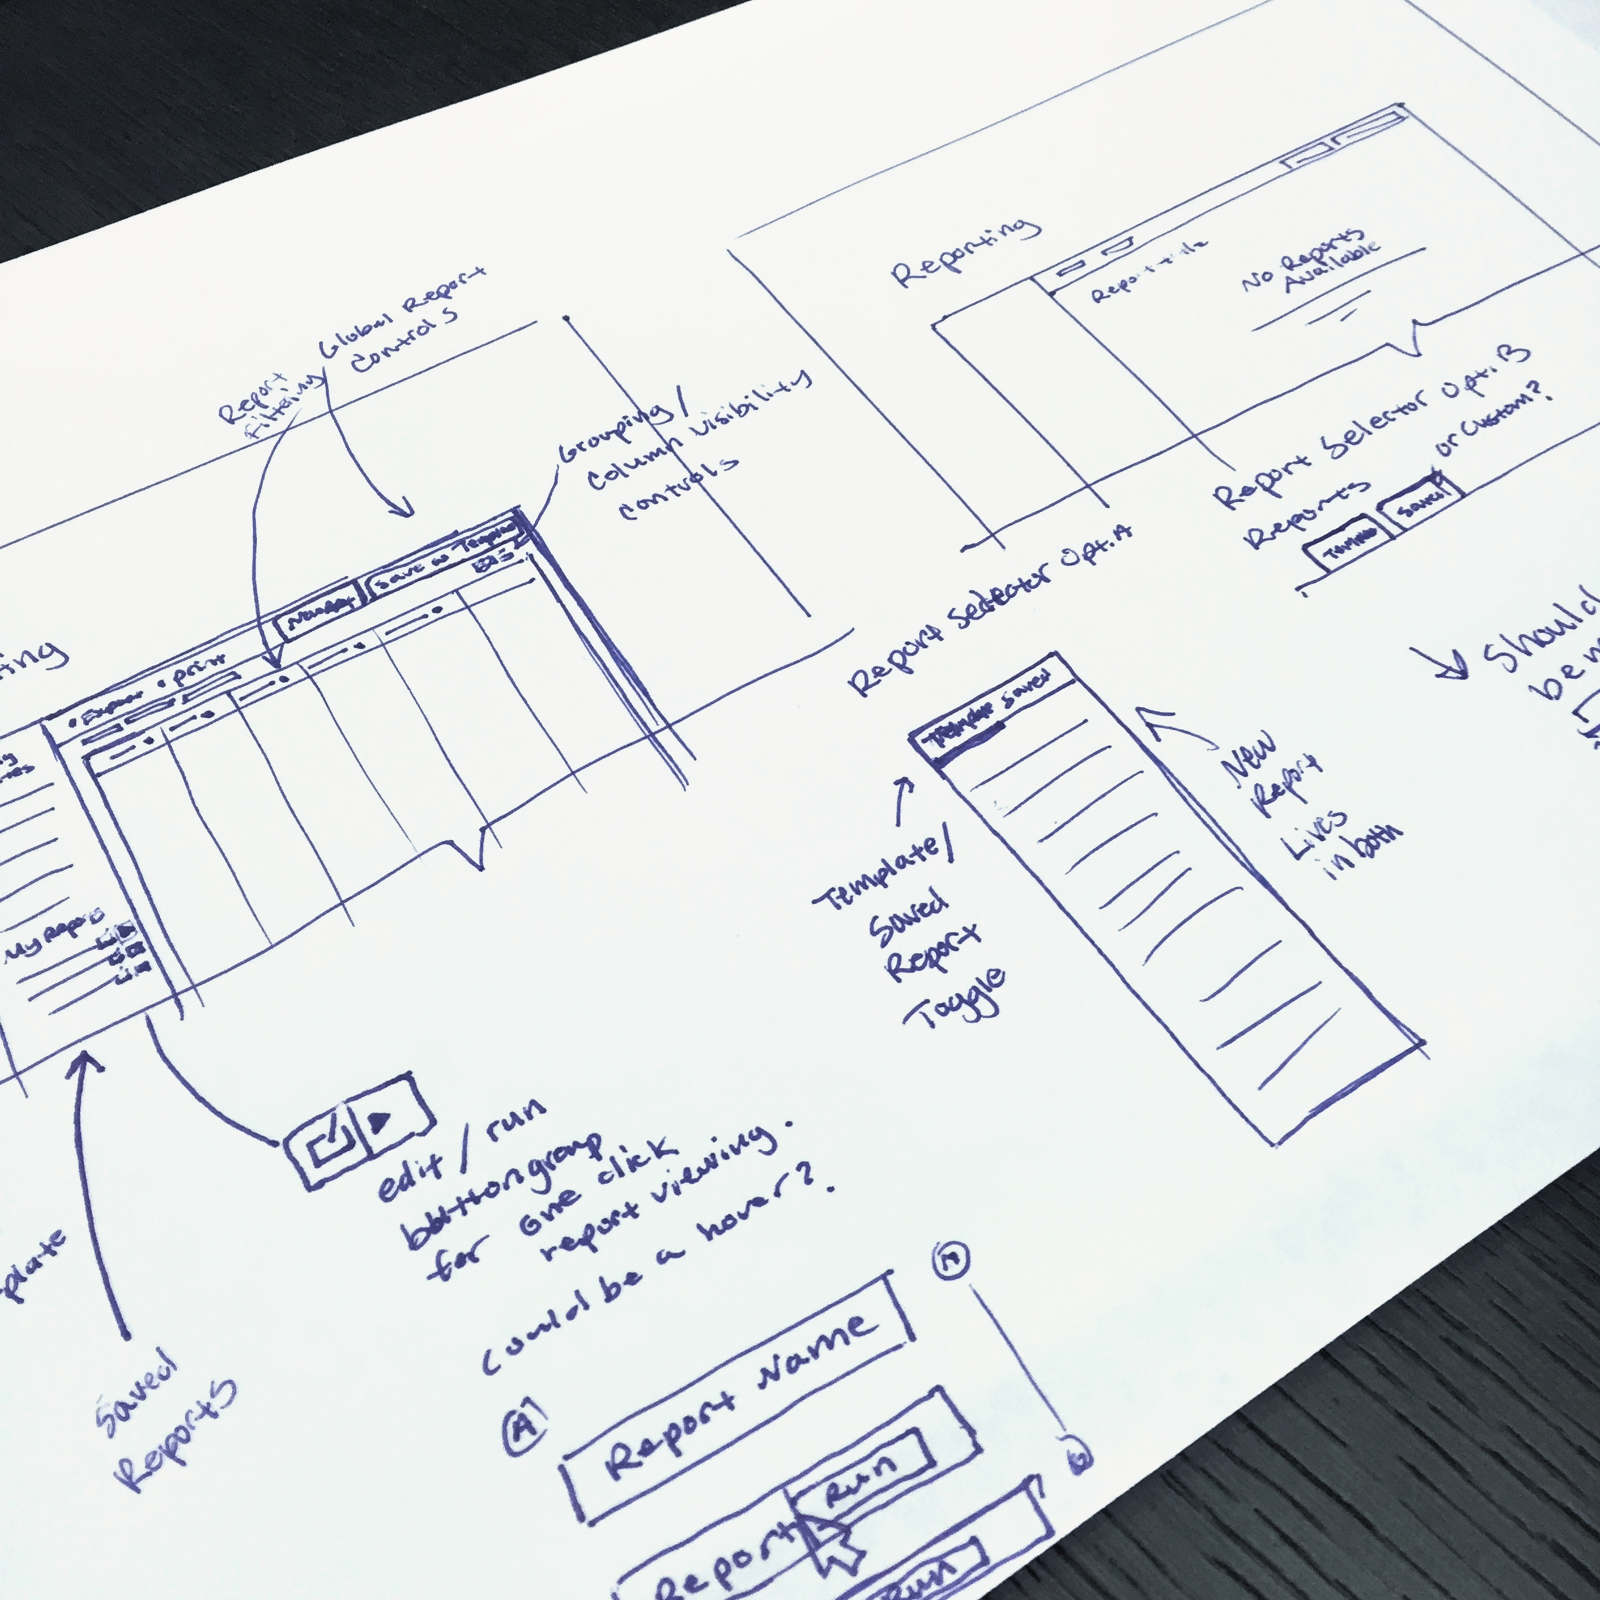 Global Report
Controls
Report
Filtering
Grouping/
Column Visibility
Controls
Save as Template
• Export • print
My Reports
edit / run
button group
for one click
report viewing.
Could be a hover?
Saved
Reports
plate
A
Report Name
Report
Run
Run
Reporting
Report title
No Reports
Available
Report Selector Opt.A
Template Saved
Template/
Saved
Report
Toggle
New
Report
Lives
in both
Report Selector Opt.B
or Custom?
Reports
Saved
Should